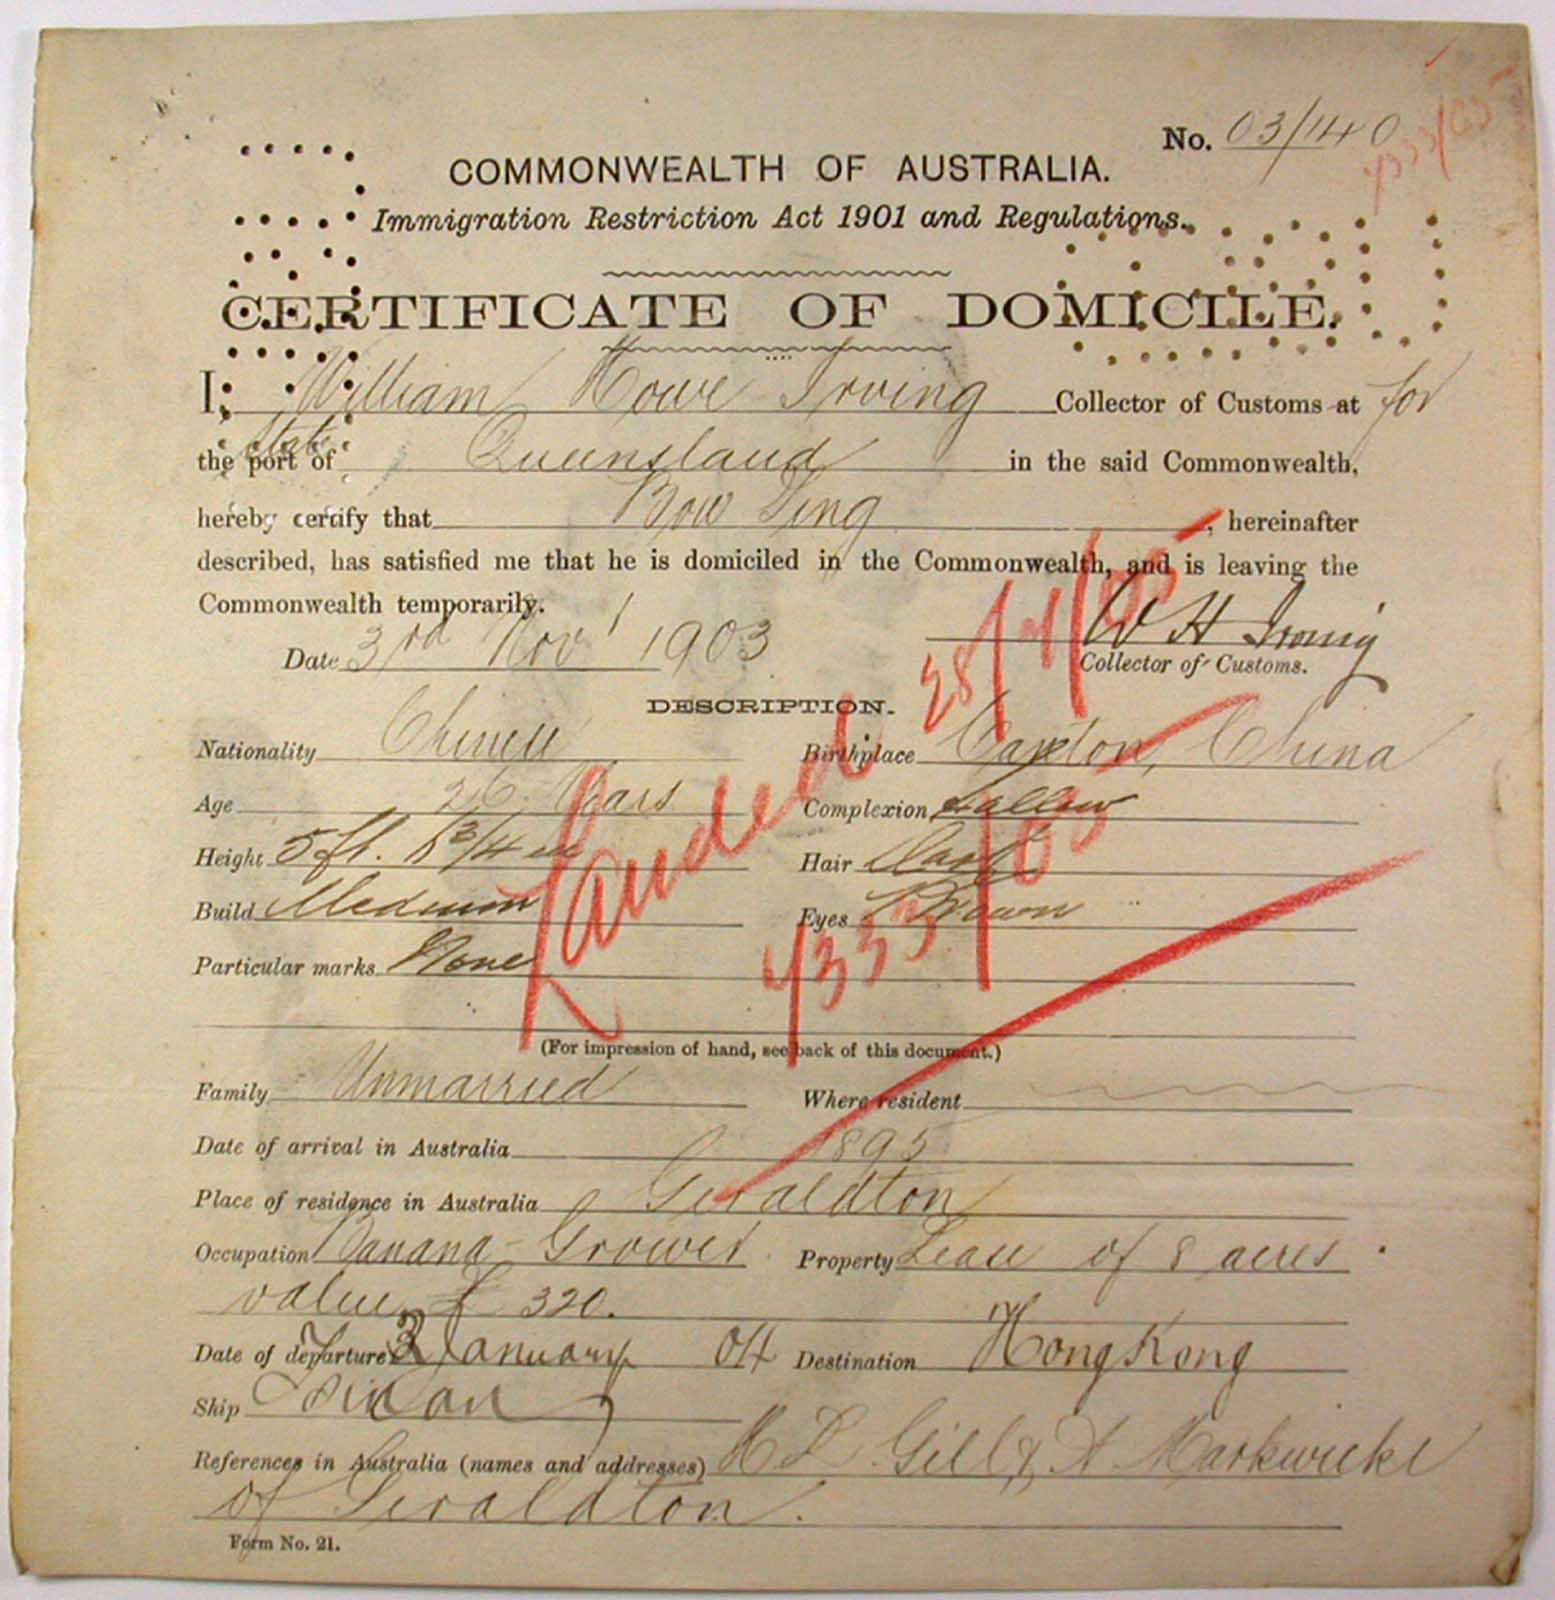 No. 03/140
4333/05
COMMONWEALTH OF AUSTRALIA.
Immigration Restriction Act 1901 and Regulations.
CERTIFICATE OF DOMICILE.
I, William Howe Irving Collector of Customs at for
State
the port of Queensland in the said Commonwealth,
hereby certify that Bow Ling, hereinafter
described, has satisfied me that he is domiciled in the Commonwealth, and is leaving the
Commonwealth temporarily.
Date 3rd Nov 1903 W H Irving
Collector of Customs.
DESCRIPTION.
Nationality Chinese Birthplace Canton, China
Age 26 Years Complexion Sallow
Height 5 ft. 3/4 in Hair Dark
Build Medium Eyes Brown
Particular marks None
Landed 28/4/05
4333/05
(For impression of hand, see back of this document.)
Family Unmarried Where resident
Date of arrival in Australia 1895
Place of residence in Australia Geraldton
Occupation Banana-Grower Property Lease of 8 acres
value £ 320.
Date of departure 3 January 04 Destination Hong Kong
Ship
References in Australia (names and addresses) Gill & A Markwicke
of Geraldton.
Form No. 21.